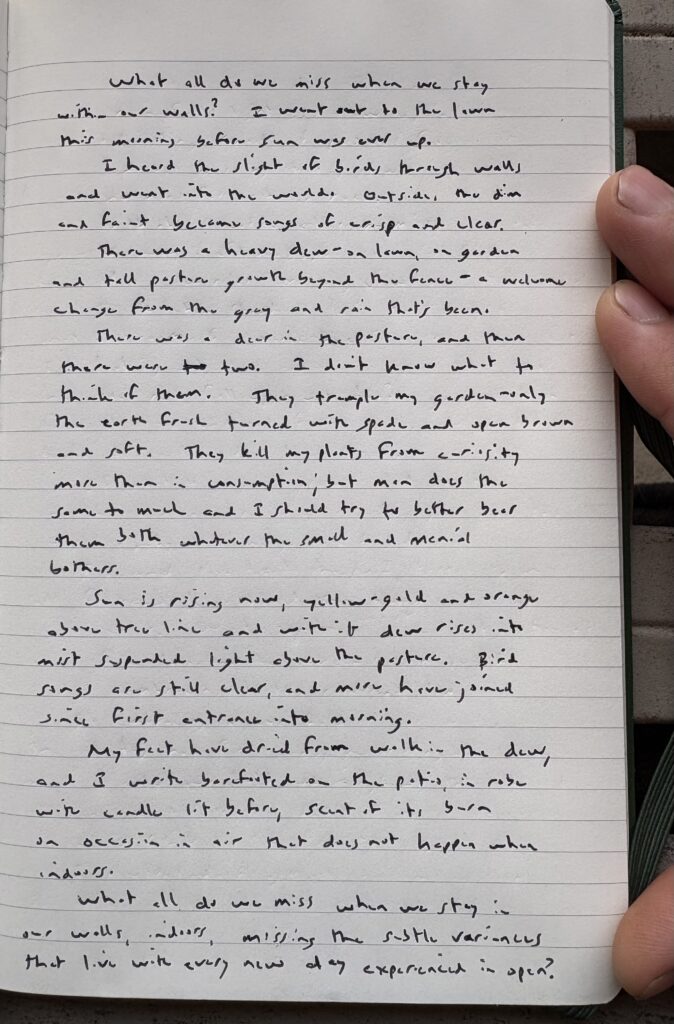 What all do we miss when we stay
within our walls? I went out to the lawn
this morning before sun was ever up.
I heard the slight of birds through walls
and went into the world. Outside, the dim
and faint became songs of crisp and clear.
There was a heavy dew - on lawn, on garden
and tall pasture growth beyond the fence - a welcome
change from the grey and rain that's been.
There was a deer in the pasture, and then
there were two. I don't know what to
think of them. They trample my garden - only
the earth fresh turned with spade and open brown
and soft. They kill my plants from curiosity
more than in consumption; but man does the
same to much and I should try to better bear
them both whatever the small and menial
bothers.
Sun is rising now, yellow-gold and orange
above tree line and with it dew rises into
mist suspended light above the pasture. Bird
songs are still clear, and more have joined
since first entrance into morning.
My feet have dried from walk in the dew,
and I write barefooted on the patio, in robe
with candle lit before, scent of its burn
on occasion in air that does not happen when
indoors.
What all do we miss when we stay in
our walls, indoors, missing the subtle variances
that live with every new day experienced in open?